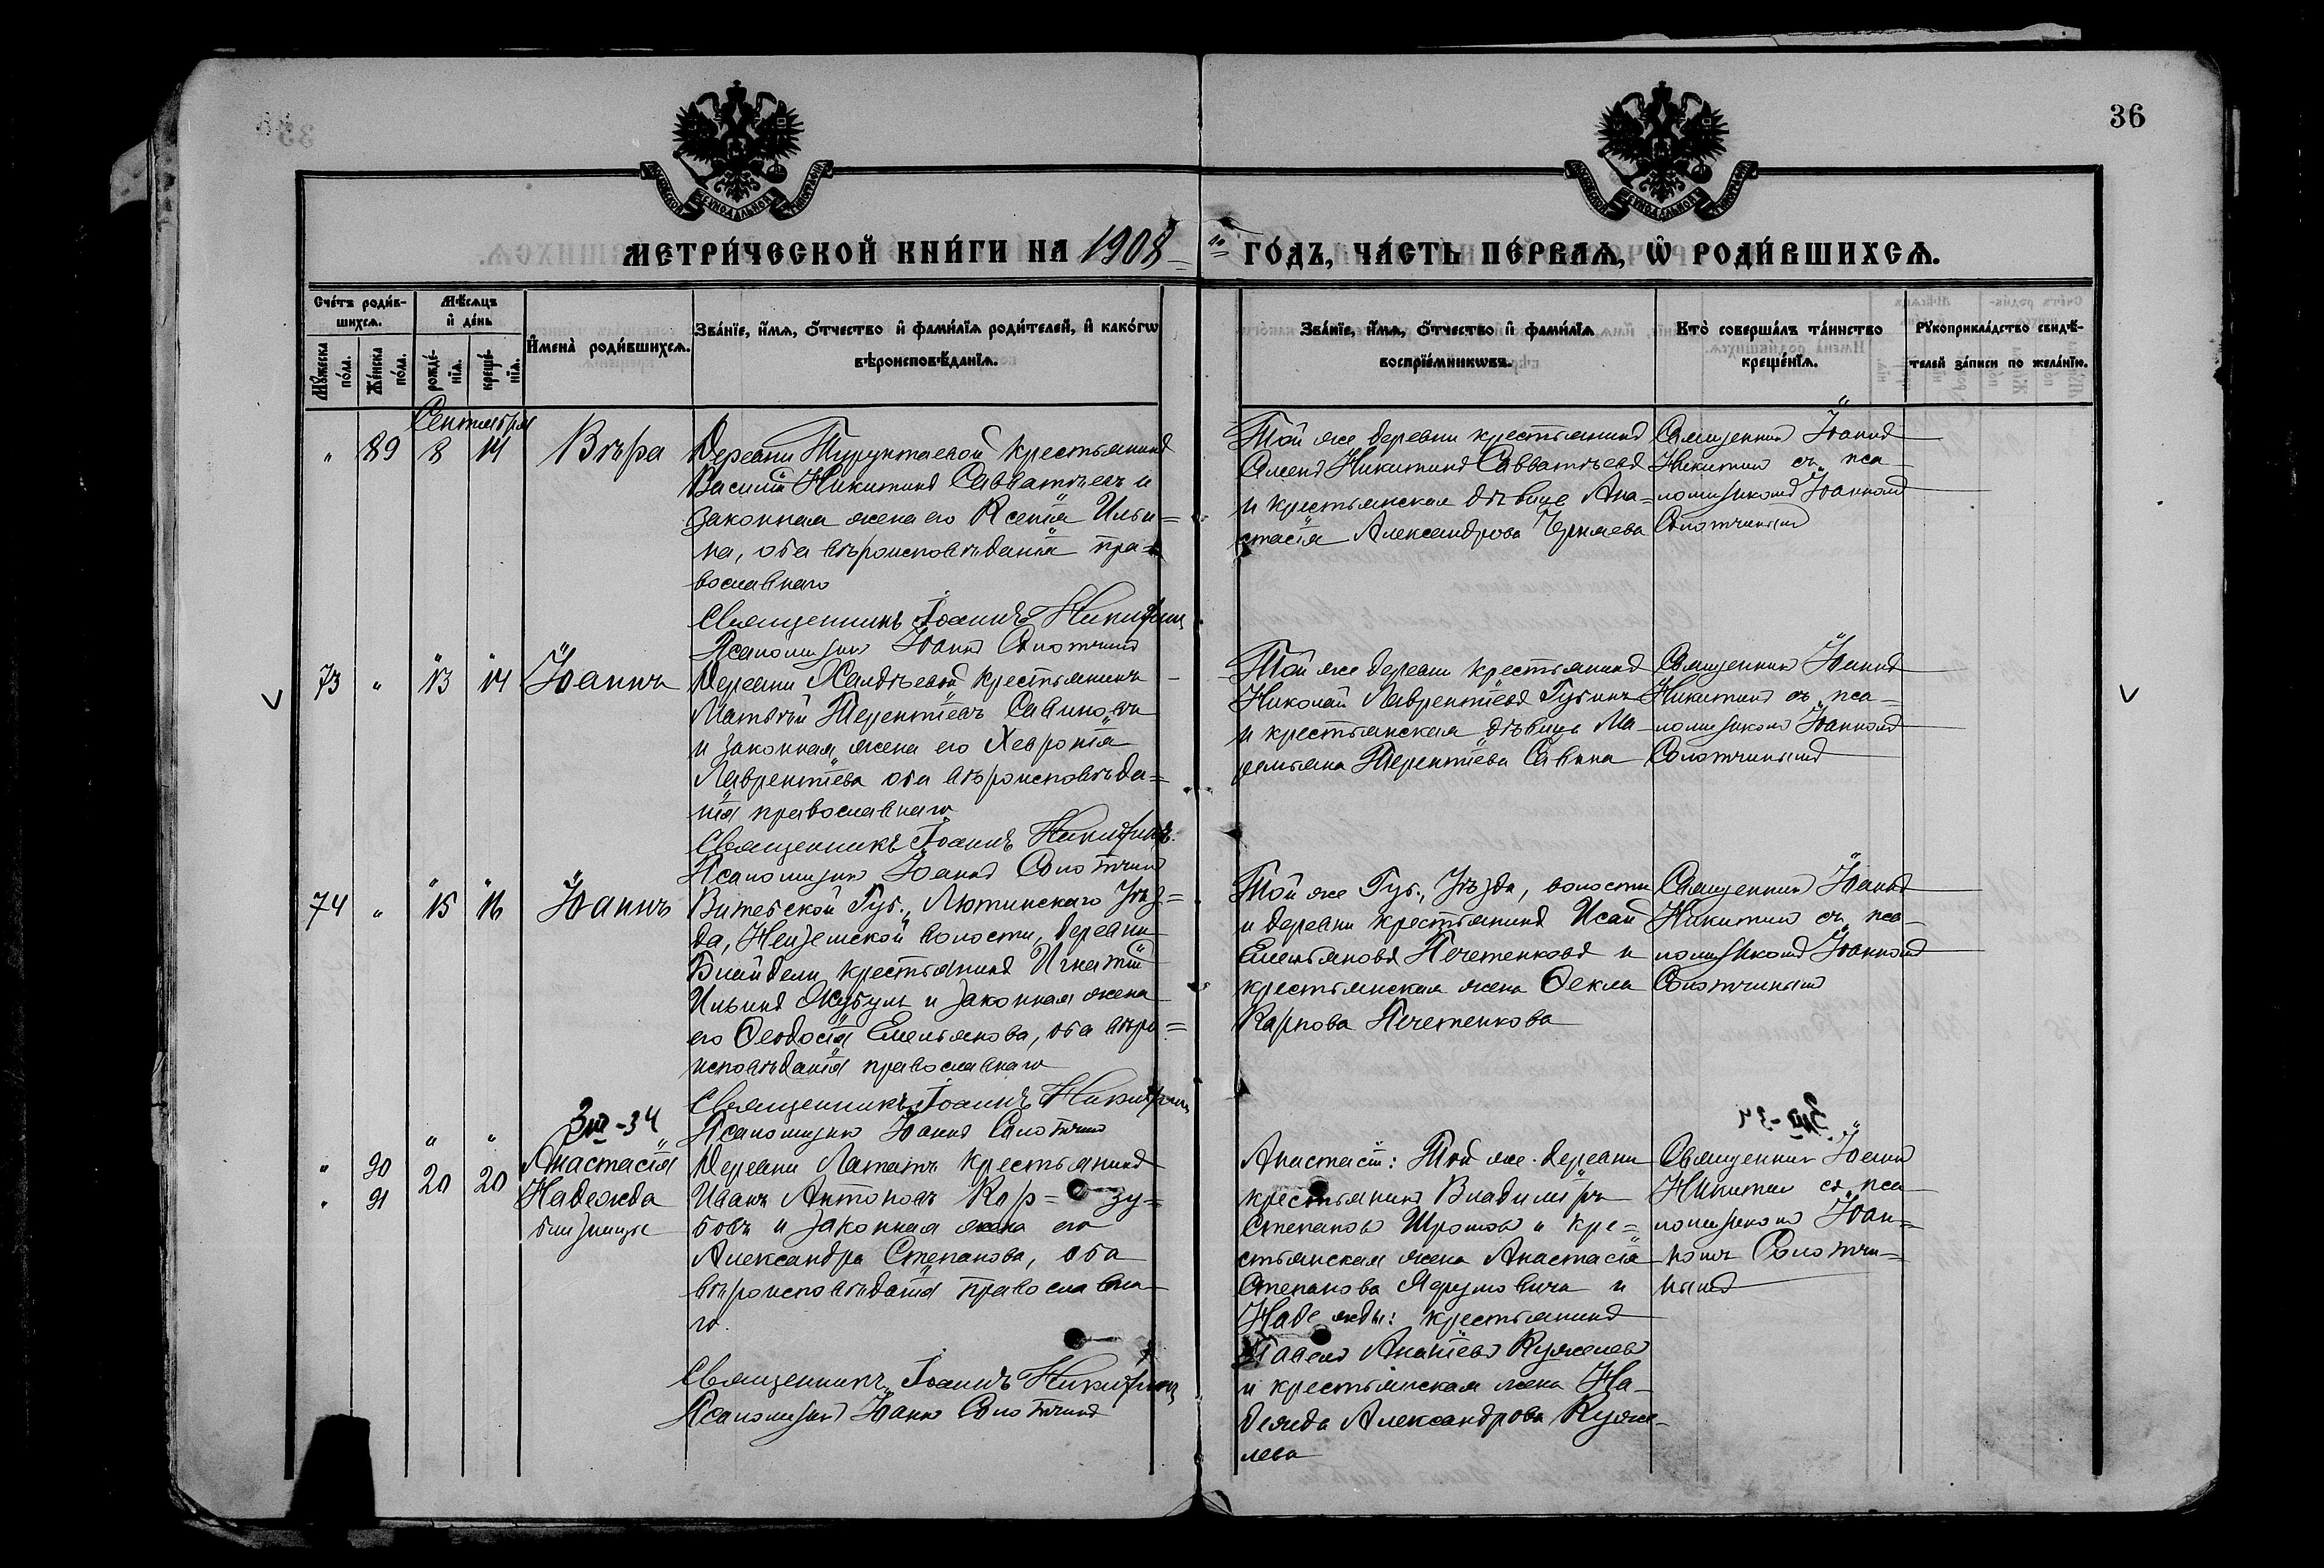 36
МЕТРИ́ЧЕСКОЙ КНИ́ГИ НА 1908 -го ГО́ДЪ, ЧА́СТЬ ПЕ́РВАѦ, Ѽ РОДИ́ВШИХСѦ.
Сче́тъ роди́в-
шихсѧ.
Мꙋ́жеска по́ла.
Же́нска по́ла.
Мѣ́сѧцъ
и҆ де́нь
рожде́-
нїѧ.
креще́-
нїѧ.
И҆мена̀ роди́вшихсѧ.
Зва́нїе, и҆́мѧ, ѻ҆́тчество и҆ фами́лїѧ роди́телей, и҆ како́гѡ
вѣроисповѣ́данїѧ.
Зва́нїе, и҆́мѧ, ѻ҆́тчество и҆ фами́лїѧ
воспрїе́мникѡвъ.
Кто̀ соверша́лъ та́инство
креще́нїѧ.
Рꙋкоприкла́дство свидѣ́-
телей за́писи по жела́нїю.
Сентября
" 89 8 14 Вѣра
Деревни Турунтаевой крестьянинъ
Василій Никитинъ Савватѣевъ и
законная жена его Ксенія Ильи=
на, оба вѣроисповѣданія пра=
вославнаго
Священникъ Іоаннъ Никитинъ
Псаломщикъ Іоаннъ Солотчинъ
Той же деревни крестьянинъ
Семенъ Никитинъ Савватѣевъ
и крестьянская дѣвица Ана=
стасія Александрова Черняева
Священникъ Іоаннъ
Никитинъ съ пса-
ломщикомъ Іоанномъ
Солотчинымъ
73 " 13 14 Іоаннъ
Деревни Халдѣевой крестьянинъ
Матвѣй Терентіевъ Савиновъ
и законная жена его Хевронія
Лаврентіева оба вѣроисповѣда=
нія православнаго
Священникъ Іоаннъ Никитинъ.
Псаломщикъ Іоаннъ Солотчинъ
Той же деревни крестьянинъ
Николай Лаврентіевъ Губинъ
и крестьянская дѣвица Ма-
ремьяна Терентіева Савина
Священникъ Іоаннъ
Никитинъ съ пса-
ломщикомъ Іоанномъ
Солотчинымъ
74 " 15 16 Іоаннъ
Витебской Губ., Лютинскаго Уѣз=
да, волости, деревни
крестьянинъ Игнатій
Ильинъ и законная жена
его Ѳеодосія Емельянова, оба вѣро=
исповѣданія православнаго
Священникъ Іоаннъ Никитинъ
Псаломщикъ Іоаннъ Солотчинъ
Той же Губ., Уѣзда, волости
и деревни крестьянинъ Исай
Емельяновъ Печетенковъ и
крестьянская жена Ѳекла
Карпова Печетенкова
Священникъ Іоаннъ
Никитинъ съ пса-
ломщикомъ Іоанномъ
Солотчинымъ
3/VII-34
" 90 20 20 Анастасія
" 91 Надежда
близнецы
Деревни Лататъ крестьянинъ
Иванъ Антоновъ Кар= зу=
бовъ и законная жена его
Александра Степанова, оба
вѣроисповѣданія православна-
го.
Священникъ Іоаннъ Никитинъ
Псаломщикъ Іоаннъ Солотчинъ
Анастасіи: Той же деревни
крестьянинъ Владиміръ
Степановъ и кре=
стьянская жена Анастасія
Степанова и
Надежды: крестьянинъ
Павелъ Ананіевъ Кужелевъ
и крестьянская жена На-
дежда Александрова Куже-
лева
Священникъ Іоаннъ
Никитинъ съ пса-
ломщикомъ Іоан=
номъ Солотчи=
нымъ